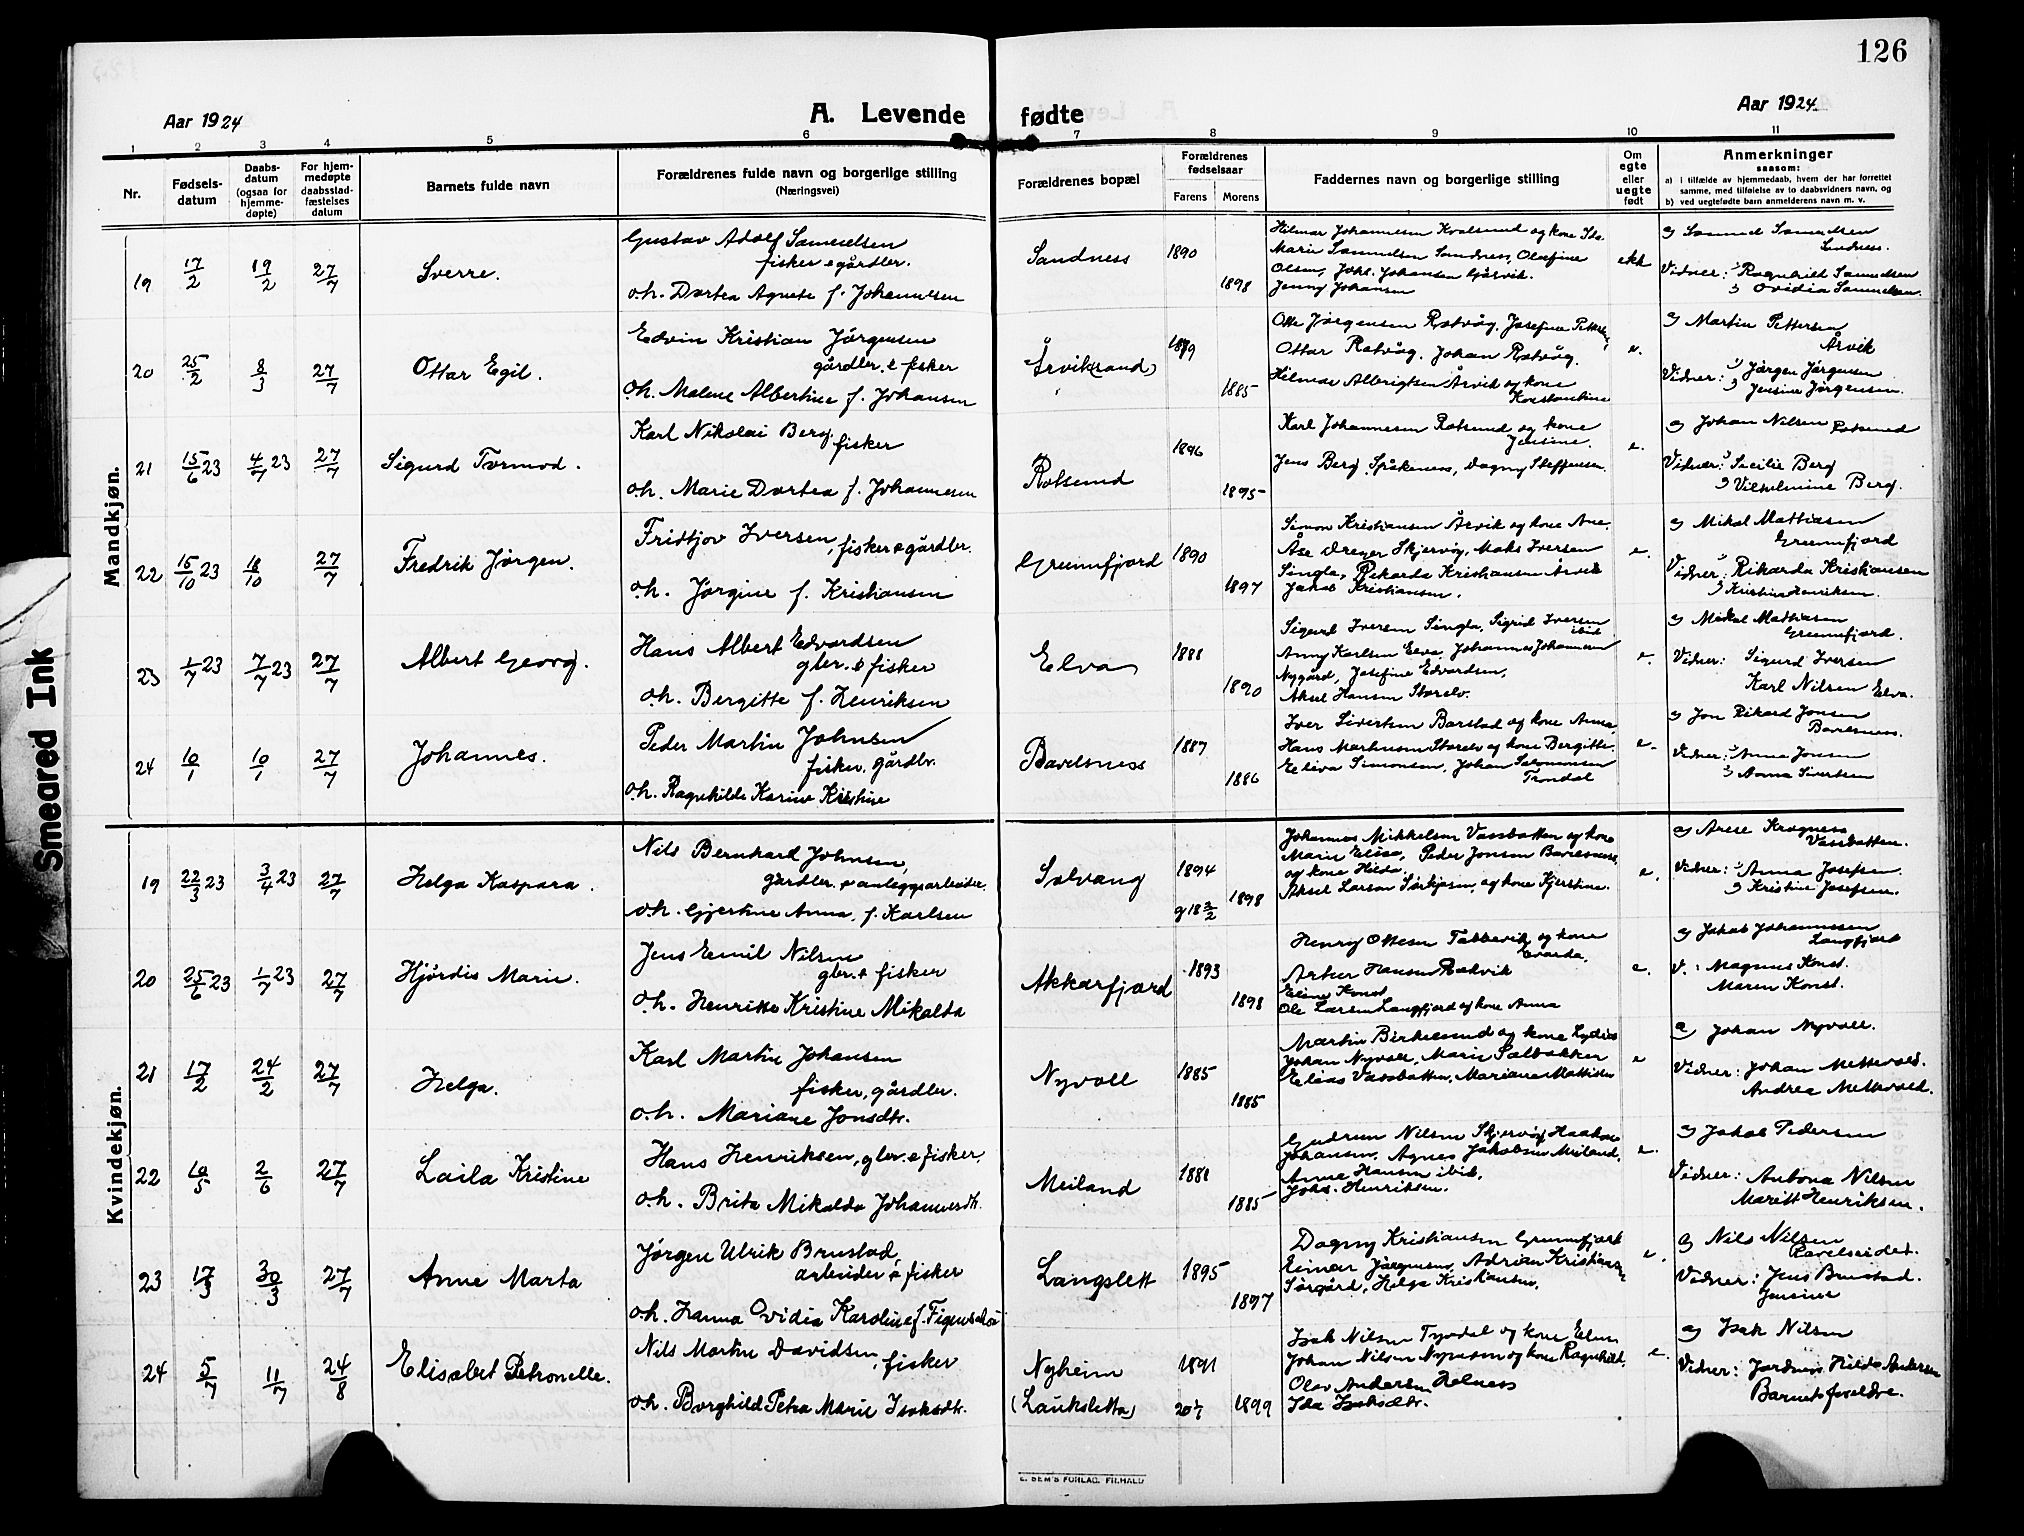 126
Aar 1924
A. Levende fødte
Aar 1924
1 2 3 4 5 6 7 8 9 10 11
Nr.
Fødsels-
datum
Daabs-
datum
(ogsaa for
hjemme-
døpte)
For hjem-
medøpte
daabsstad-
fæstelses
datum
Barnets fulde navn
Forældrenes fulde navn og borgerlige stilling
(Næringsvei)
Forældrenes bopæl
Forældrenes
fødselsaar
Farens Morens
Faddernes navn og borgerlige stilling
Om
egte
eller
uegte
født
Anmerkninger
saasom:
a) i tilfælde av hjemmedaab, hvem der har forrettet
samme, med tilføielse av to daabsvidners navn, og
b) ved uegtefødte barn anmelderens navn m. v.
Mandkjøn.
19 17/2 19/2 27/7 Sverre.
Gustav Adolf Samuelsen
fisker o gårdbr.
o.h. Dortea Agnete f. Johannesen
Sandness 1890 1898
Hilmar Johannesen Kvalsund og kone Ida
Marie Samuelsen Sandness, Olufine
Olsen, Johs. Johansen
Jenny Johansen
ekt
a) Samuel Samuelsen
Sandness.
Vidner: 1) Ragnhild Samuelsen
2) Ovidia Samuelsen.
20 25/2 8/3 27/7 Ottar Egil.
Edvin Kristian Jørgensen
gårdbr. & fisker
o.h. Malene Albertine f. Johansen
Årvik(sand) 1879 1885
Otto Jørgensen Rotvåg, Josefine Petters.,
Ottar Rotvåg. Johan Rotvåg.
Hilmar Albrigtsen Årvik og kone
Konstantine
e.
a) Martin Pettersen
Årvik
Vidner: 1) Jørgen Jørgensen
2) Jensine Jørgensen.
21 15/6 23 4/7 23 27/7 Sigurd Tormod.
Karl Nikolai Berg
fisker
o.h. Marie Dortea f. Johannesen
Rotsund 1896 1895
Karl Johannesen Rotsund og kone
Jensine.
Jens Berg. Spåkenes, Dagny Steffensen.
e.
a) Johan Nilsen Rotsund
Vidner: 1) Secilie Berg
2) Vilhelmine Berg.
22 15/10 23 18/10 27/7 Fredrik Jørgen.
Fridtjov Iversen, fisker o gårdbr.
o.h. Jørgine f. Kristiansen
Grunnfjord 1890 1897
Simon Kristiansen Årvik og kone Ane.
Åse Dreyer Skjervøy, Maks Iversen
Singla, Rikarda Kristiansen Årvik
Jakob Kristiansen.
e.
a) Mikal Mattiasen
Grunnfjord
Vidner: 1) Rikarda Kristiansen
2) Kristine Henriksen.
23 1/7 23 7/7 23 27/7 Albert Georg.
Hans Albert Edvardsen
gbr. & fisker
o.h. Bergitte f. Henriksen
Elva 1881 1890
Sigurd Iversen Singla, Sigrid Iversen
ibid
Anny Karlsen Elva, Johannes Johansen
Nygård, Josefine Edvardsen,
Aksel Hansen Storelv.
e.
a) Mikal Mathiasen
Grunnfjord.
Vidner: Sigurd Iversen
Karl Nilsen Elva.
24 10/1 10/1 27/7 Johannes.
Peder Martin Johnsen
fisker, gårdbr.
o.h. Ragnhilde Karine Kristine
Bavelsness 1887 1886
Iver Sivertsen Barstad og kone Anna,
Hans Markusen Storelv og kone Bergitte.
Elida Simonsen, Johan Salomonsen
Trondal
e.
a) Jon Rikard Jonsen
Bavelsness.
Vidner: 1) Anna Jonsen
2) Anna Sivertsen
Kvindekjøn.
19 22/3 23 3/4 23 27/7 Helga Kaspara.
Nils Bernhard Johnsen,
gårdbr. o anleggsarbeider.
o.h. Gjertine Anna, f. Karlsen
Solvang 1894 1898
g 18 3/2
Johannes Mikkelsen Vassbotten og kone
Marie Elise, Peder Jonsen Bavelsness,
og kone Hilda,
Aksel Larsen Sørkjosen, og kone Kjerstine.
e.
a) Arese Kragness
Vassbotten.
Vidner: 1) Anna Josefsen.
2) Kristine Josefsen.
20 25/6 23 1/7 23 27/7 Hjørdis Marie.
Jens Emil Nilsen
gbr. & fisker
o.h. Henrikke Kristine Mikalda
Akkarfjord 1893 1898
Henry Ottesen Tabbevik og kone
Evarda,
Artur Hansen Rakvik
Eline Konst
Ole Larsen Langfjord og kone Anna
e.
a) Jakob Johannessen
Langfjord
V.: Magnus Konst.
Maren Konst.
21 17/2 24/2 27/7 Helga.
Karl Martin Johansen
fisker, gårdbr.
o.h. Mariane Jonsdtr.
Nyvoll 1885 1885
Martin Birkelund og kone Lydia
Johan Nyvoll, Marie Solbakken
Elias Vassbotten, Mariane Mathisen
e
a) Johan Nyvoll.
Vidner: Johan Mettevold.
Andrea Mettevold.
22 10/5 2/6 27/7 Laila Kristine
Hans Henriksen, gbr. o fisker.
o.h. Brita Mikalda Johannesdtr.
Meiland 1881 1885
Gudrun Nilsen Skjervøy, Haakon
Johansen, Agnes Jakobsen Meiland,
Anna Hansen ibid.
Johs. Henriksen.
e.
a) Jakob Pedersen
Vidner: Antona Nilsen
Marett Henriksen.
23 17/3 30/3 27/7 Anne Marta
Jørgen Ulrik Brustad,
arbeider o fisker
o.h. Hanna Ovidia Karoline f. Figenschou
Langslett 1895 1897
Dagny Kristiansen Grunnfjord
Einar Jørgensen, Adrian Kristiansen
Sørgård, Helga Kristiansen.
e.
a) Nils Nilsen
Ravelseidet.
Vidner: Jens Brustad.
Jensine
24 5/7 11/7 24/8 Elisabet Petronelle.
Nils Martin Davidsen, fisker
o.h. Borghild Petra Marie Isaksdtr.
Nyheim
(Lauksletta) 1891 1899
Isak Nilsen Tyvdal og kone Elen
Johan Nilsen Nymoen og kone Ragnhild,
Olav Andersen Helness
Ida Isaksdtr.
e.
a) Isak Nilsen
Vidner: Jordmor Hilda Andersen
Barnets foreldre.
E. SEM'S FORLAG. FR.HALD
Smeared Ink